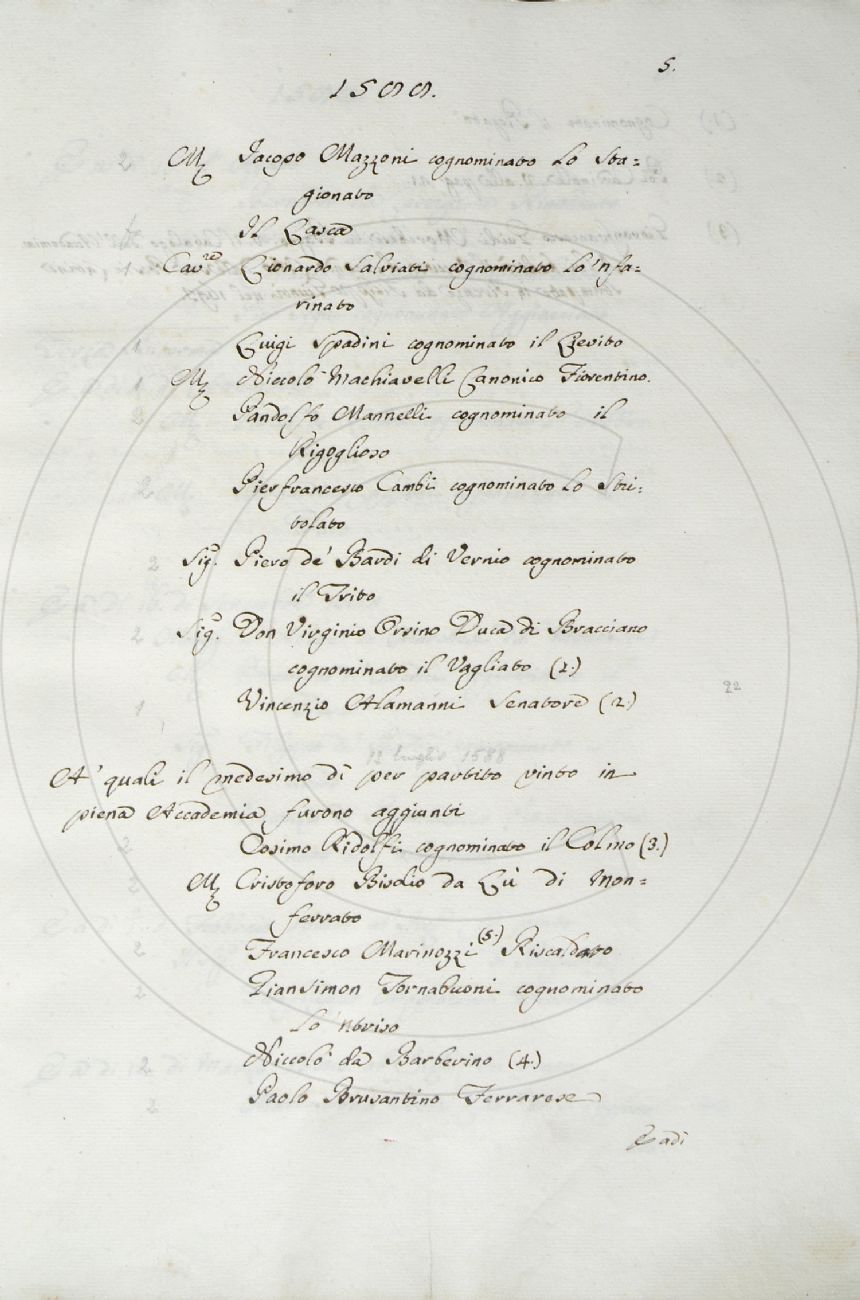 5.
1588.
M. Jacopo Mazzoni cognominato Lo Sta=
gionato
Il Lasca
Cav.re Lionardo Salviati cognominato Lo'nfa=
rinato
Luigi Spadini cognominato il Lievito
M. Niccolò Machiavelli Canonico Fiorentino.
Pandolfo Mannelli cognominato il
Rigoglioso
Pierfrancesco Cambi cognominato Lo Stri=
tolato
Sig. Piero de' Bardi di Vernio cognominato
il Trito
Sig. Don Virginio Orsino Duca di Bracciano
cognominato il Vagliato (1.)
Vincenzio Alamanni Senatore (2.)
22
12 luglio 1588
A' quali il medesimo dì per partito vinto in
piena Accademia furono aggiunti
Cosimo Ridolfi cognominato il Colmo (3.)
M. Cristoforo da Lù di Mon=
ferrato
Francesco Marinozzi (5.) Riscaldato
Giansimon Tornabuoni cognominato
Lo 'Ntriso
Niccolò da Barberino (4.)
Paolo Brusantino Ferrarese
E adì